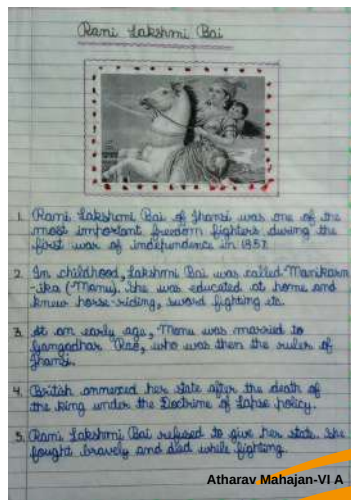 Rani Lakshmi Bai
1. Rani Lakshmi Bai of Jhansi was one of the
most important freedom fighters during the
first war of independence in 1857.
2. In childhood, Lakshmi Bai was called Manikarn
-ika (Manu). She was educated at home and
knew horse-riding, sword fighting etc.
3. At an early age, Manu was married to
Gangadhar Rao, who was then the ruler of
Jhansi.
4. British annexed her state after the death of
the king under the Doctrine of Lapse policy.
5. Rani Lakshmi Bai refused to give her state. She
fought bravely and died while fighting.
Atharav Mahajan-VI A